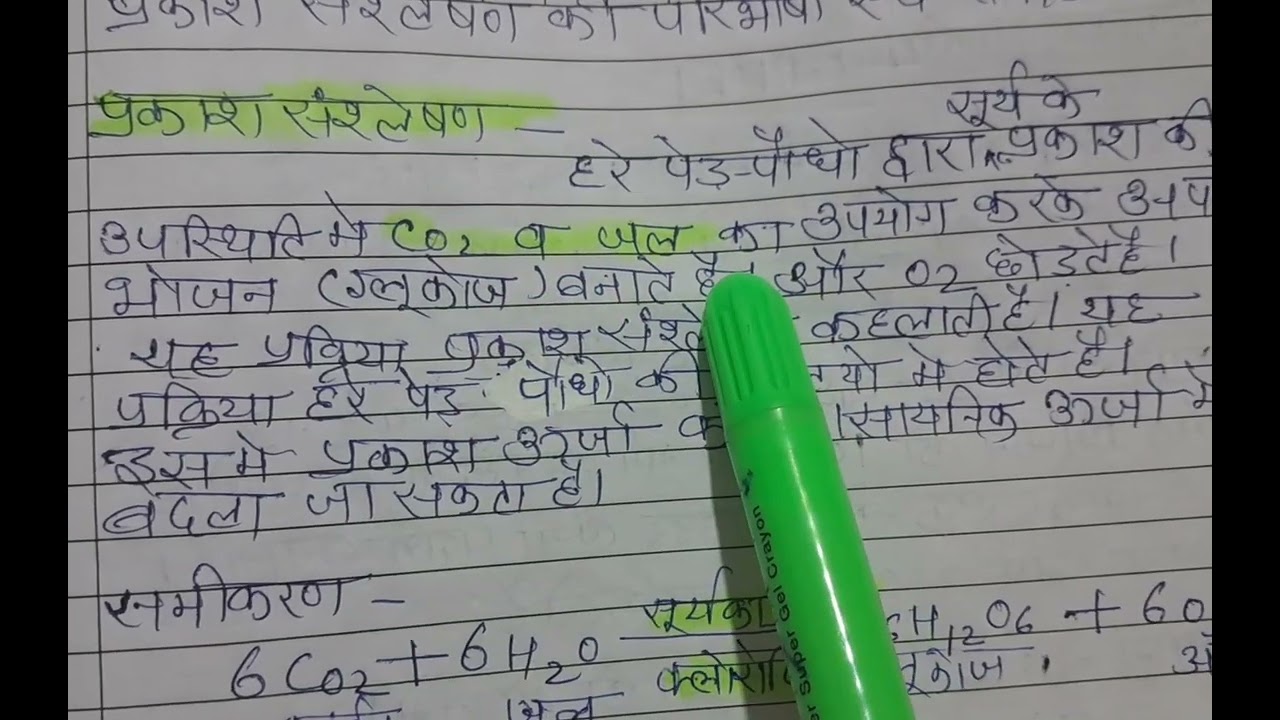 प्रकाश संश्लेषण की परिभाषा
प्रकाश संश्लेषण —
सूर्य के
हरे पेड़-पौधो द्वारा प्रकाश की
उपस्थिति मे CO₂ व जल का उपयोग करके
भोजन (ग्लूकोज) बनाते है। और O₂ छोड़ते है।
यह प्रक्रिया प्रकाश कहलाती है। यह
प्रक्रिया हरे पेड़ पौधो की मे होते है।
इसमे प्रकाश ऊर्जा ऊर्जा मे
बदला जा सकता है।
समीकरण —
6CO₂ + 6H₂O सूर्यका H₁₂O₆ + 6O
जल
Super Gel Crayon